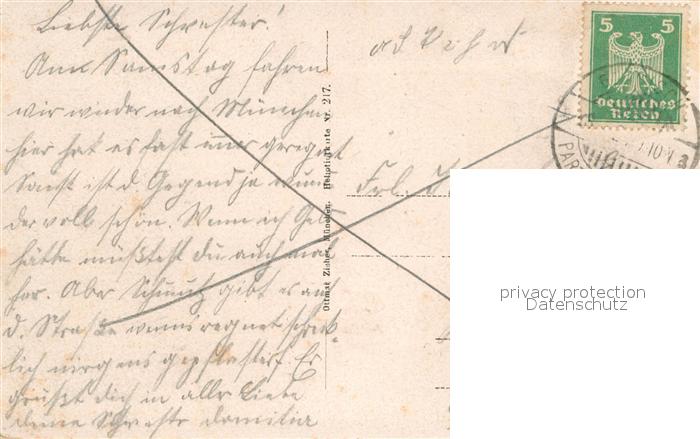 Liebste Schwester!
Am Samstag fahren
wir wieder nach München
hier hat es fast immer geregnet
Sonst ist d. Gegend ja wun-
dervoll schön. Wenn ich Geld
hätte müßtest du auch mal
her. Aber Schmutz gibt es auf
d. Straße wenns regnet schreck-
lich nirgens gepflastert. Es
grüßt dich in aller Liebe
deine Schwester
Ottmar Zieher, München. Heliotintkarte Nr. 217.
Frl.
5 5
Deutsches
Reich
PAR
privacy protection
Datenschutz